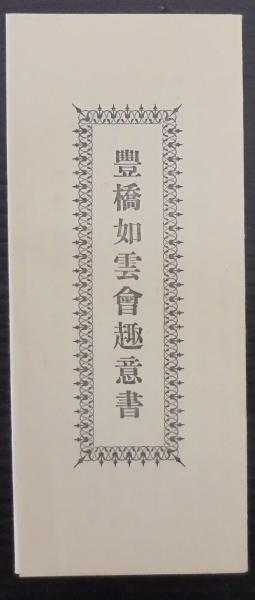 豐橋如雲會趣意書